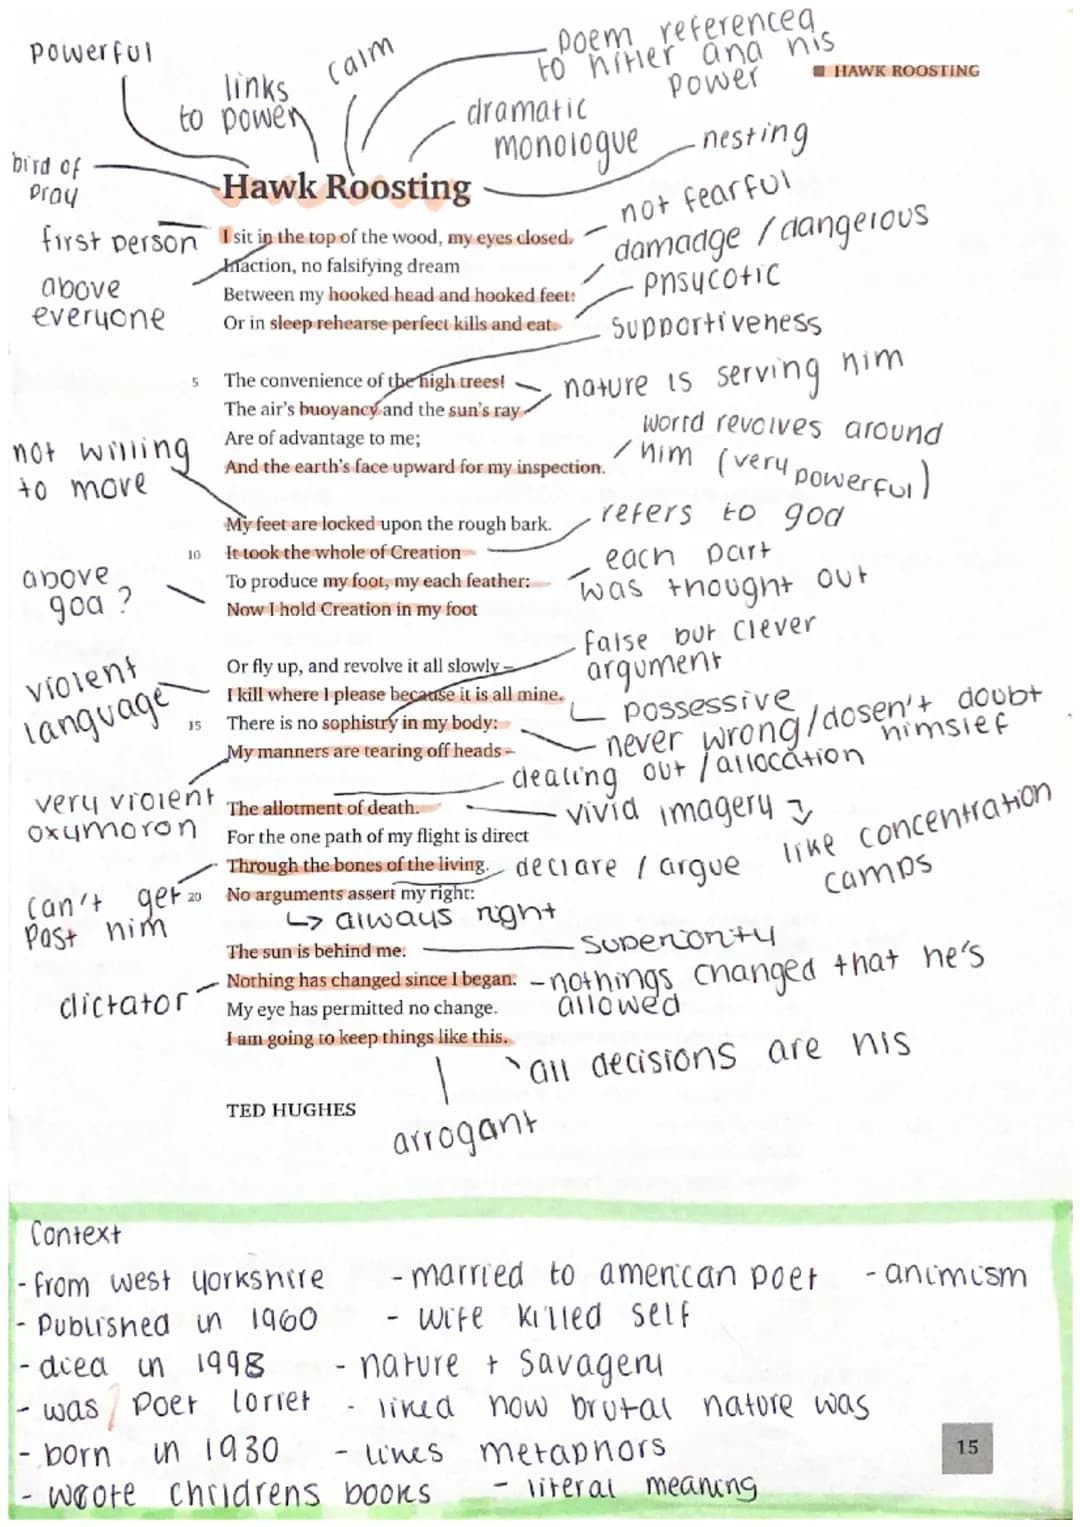 powerful
links
to power
calm
poem referenced
to hitler and his
power
HAWK ROOSTING
dramatic
monologue
nesting
bird of
pray
Hawk Roosting
not fearful
first person
I sit in the top of the wood, my eyes closed.
damadge / dangerous
Inaction, no falsifying dream
above
everyone
Between my hooked head and hooked feet:
pnsycotic
Or in sleep rehearse perfect kills and eat.
supportiveness
5 The convenience of the high trees!
nature is serving him
The air's buoyancy and the sun's ray
Are of advantage to me;
world revolves around
him (very powerful)
And the earth's face upward for my inspection.
not willing
to move
My feet are locked upon the rough bark.
refers to god
10 It took the whole of Creation
each part
was thought out
To produce my foot, my each feather:
above
god ?
Now I hold Creation in my foot
false but clever
argument
Or fly up, and revolve it all slowly –
violent
language
I kill where I please because it is all mine.
possessive
15 There is no sophistry in my body:
never wrong/dosen't doubt
himslef
My manners are tearing off heads –
dealing out / allocation
very violent
oxymoron
The allotment of death.
vivid imagery
like concentration
camps
For the one path of my flight is direct
Through the bones of the living.
declare / argue
can't get
past him
20 No arguments assert my right:
always right
The sun is behind me.
superiority
Nothing has changed since I began.
- nothings changed that he's
allowed
dictator
My eye has permitted no change.
I am going to keep things like this.
all decisions are his
arrogant
TED HUGHES
Context
- from west yorkshire
- married to american poet
- animism
- published in 1960
- wife killed self
- died in 1998
- nature + savagery
- was poet lorret
- liked how brutal nature was
- born in 1930
- likes metaphors
- wrote childrens books
- literal meaning
15